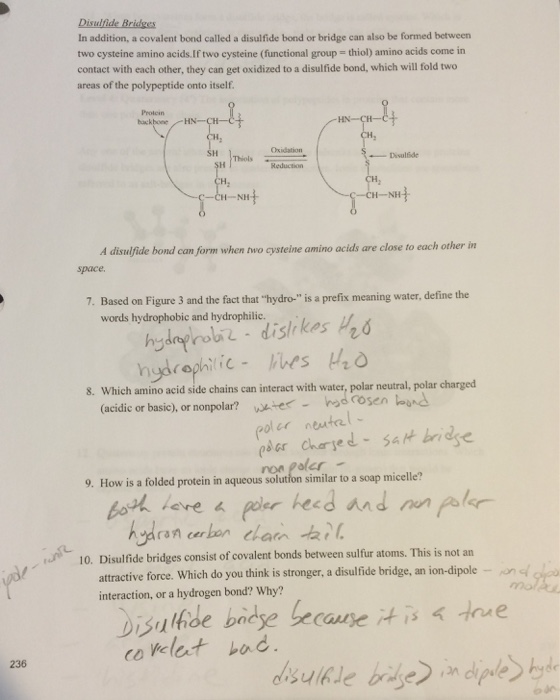 Disulfide Bridges
In addition, a covalent bond called a disulfide bond or bridge can also be formed between
two cysteine amino acids.If two cysteine (functional group = thiol) amino acids come in
contact with each other, they can get oxidized to a disulfide bond, which will fold two
areas of the polypeptide onto itself.
Protein
backbone
HN—CH—C
O
CH₂
SH
SH
Thiols
CH₂
C—CH—NH
O
Oxidation
Reduction
HN—CH—C
O
CH₂
S
S
Disulfide
CH₂
C—CH—NH
O
A disulfide bond can form when two cysteine amino acids are close to each other in
space.
7. Based on Figure 3 and the fact that "hydro-" is a prefix meaning water, define the
words hydrophobic and hydrophilic.
hydrophobic - dislikes H₂O
hydrophilic - likes H₂O
8. Which amino acid side chains can interact with water, polar neutral, polar charged
(acidic or basic), or nonpolar?
water - hydrogen bond
polar neutral -
polar charged - salt bridge
non polar -
9. How is a folded protein in aqueous solution similar to a soap micelle?
Both have a polar head and non polar
hydron carbon chain tail.
10. Disulfide bridges consist of covalent bonds between sulfur atoms. This is not an
attractive force. Which do you think is stronger, a disulfide bridge, an ion-dipole
interaction, or a hydrogen bond? Why?
Disulfide bridge because it is a true
covalent bad.
disulfide bridge > ion dipole > hydr
236